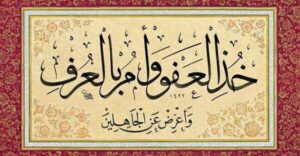 خُذِ العَفْوَ وَأْمُرْ بِالعُرْفِ
وَأَعْرِضْ عَنِ الجَاهِلِينَ